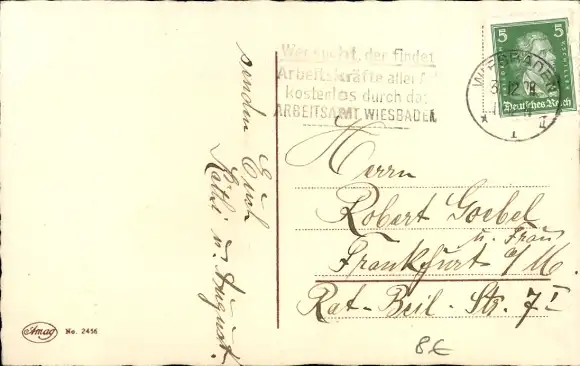 senden
Euch
Käthi u. August.
Wer sucht, der findet
Arbeitskräfte aller
kostenlos durch das
ARBEITSAMT WIESBADEN
5 5
Deutsches Reich
WIESBADEN
12
1
Herrn
Robert Goebel
u. Frau
Frankfurt a/M.
Rat-Beil-Str. 7 I
Amag No. 2456
8€